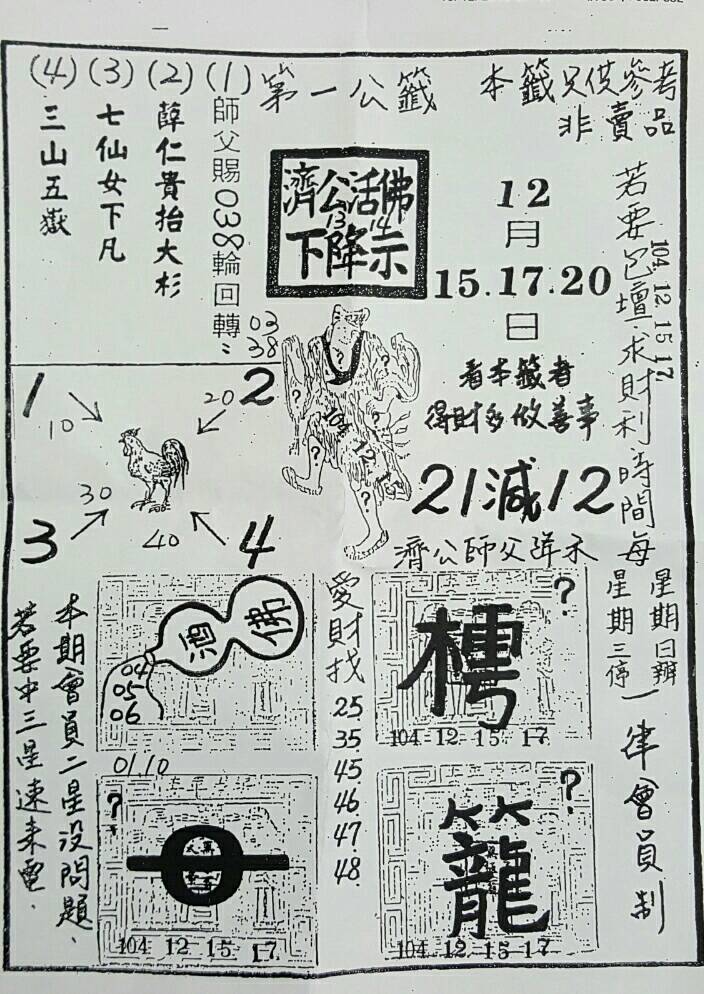 本籤只供參考
非賣品
第一公籤
(1) 師父賜038輪回轉
03
38
(2) 薛仁貴抬大杉
(3) 七仙女下凡
(4) 三山五嶽
濟公活佛
13 14
下降示
12
月
15.17.20
日
若要包壇求財利時間每
星期日辦
星期三停
一律會員制
104 12 15 17
看本籤者
得財多做善事
21減12
濟公師父降示
104 12 15
? ? ? ? ?
1 10
20 2
3 30
40 4
愛財找
25
35
45
46
47
48
佛
酒
04
05
06
?
104 12 15 17
01.10
?
104 12 15 17
?
籠
104 12 15 17
本期會員二星沒問題.
若要中三星速來電.